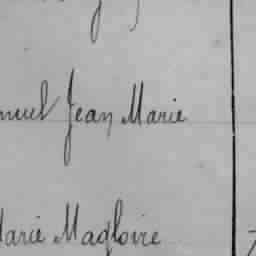 nuel Jean Marie
Marie Magloire